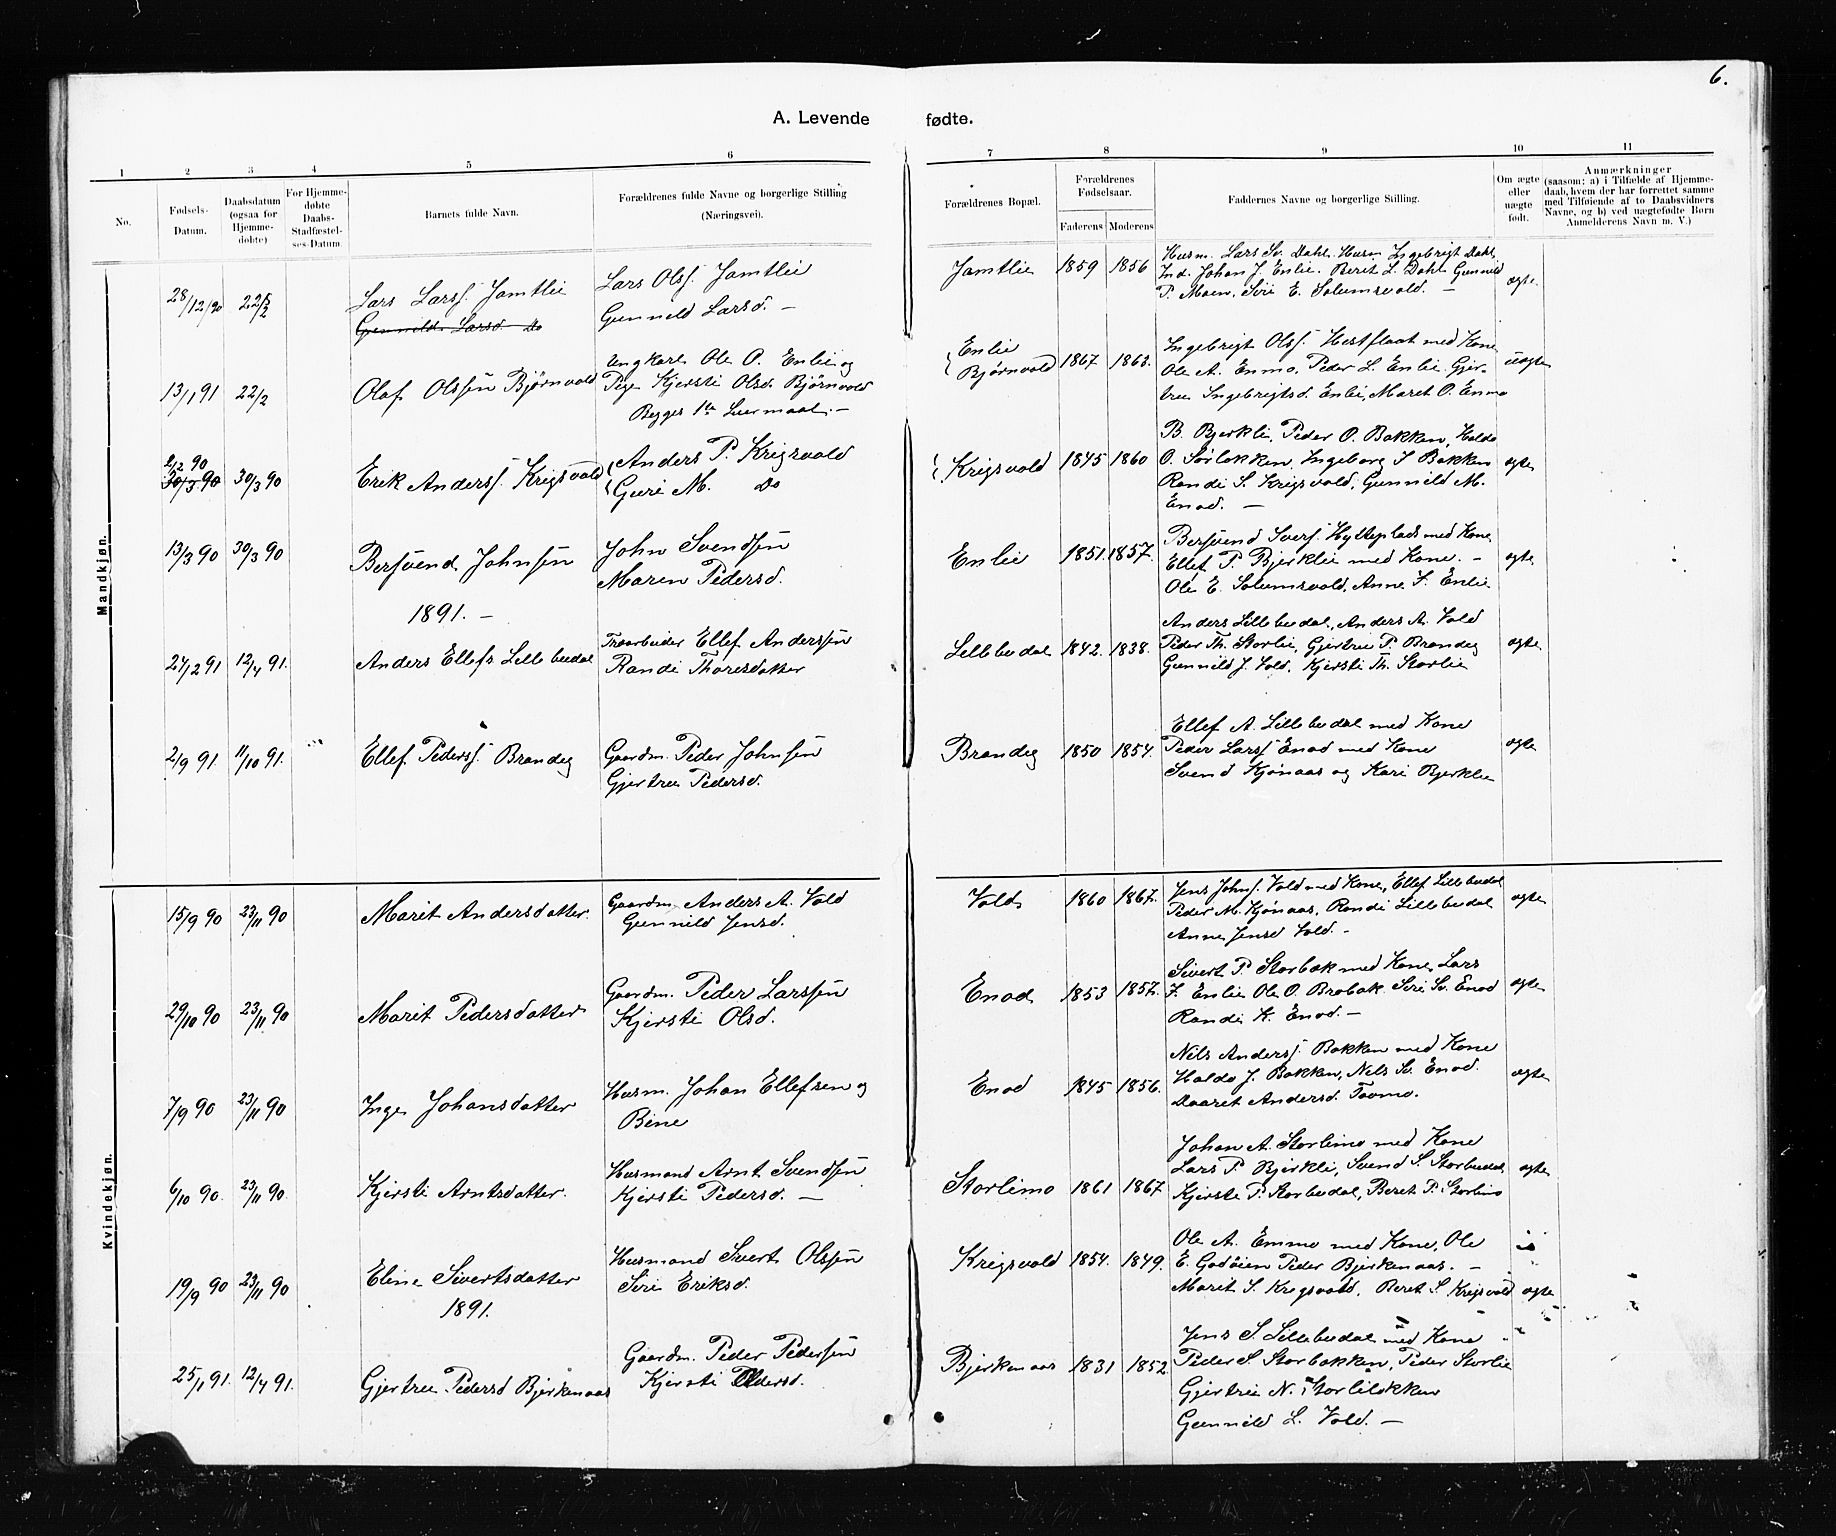 6.
A. Levende fødte.
1 2 3 4 5 6 7 8 9 10 11
No.
Fødsels-
Datum.
Daabsdatum
(ogsaa for
Hjemme-
døbte)
For Hjemme-
døbte
Daabs-
Stadfæstel-
ses-Datum.
Barnets fulde Navn.
Forældrenes fulde Navne og borgerlige Stilling
(Næringsvei).
Forældrenes Bopæl.
Forældrenes
Fødselsaar.
Faderens Moderens
Faddernes Navne og borgerlige Stilling.
Om ægte
eller
uægte
født.
Anmærkninger
(saasom: a) i Tilfælde af Hjemme-
daab, hvem der har forrettet samme
med Tilføiende af to Daabsvidners
Navne, og b) ved uægtefødte Børn
Anmelderens Navn m. V.)
Mandkjøn.
28/12/90 22/2
Lars Larss. Jamtlie
Gunnild Larsd. Do
Lars Olss. Jamtlie
Gunnild Larsd. –
Jamtlie 1859 1856
Husm. Lars Sv. Dahl. Husm Ingebrigt Dahl,
Ind. Johan J. Enlie. Beret L. Dahl Gunnild
P. Moen, Siri E. Solumsvold. –
ægte
13/1 91 22/2
Olaf Olssen Bjørnvold
Ungkarl Ole O. Enlie og
Pige Kjersti Olsd. Bjørnvold
Begges 1ste Leiermaal. –
Enlie
Bjørnvold 1867 1863.
Ingebrigt Olss. Hestflaat med Kone
Ole A. Enmo, Peder L. Enlie. Gjer-
tru Ingebrigtsd. Enlie, Maret O. Enmo
uægte
2/2 90
30/3 90 30/3 90
Erik Anderss. Krigsvold
Anders P. Krigsvold
Guri M. Do
Krigsvold 1845 1860
B. Bjerkli, Peder O. Bakken, Haldo
O. Sørløkken, Ingeborg S. Bakken
Randi S. Krigsvold, Gunnild M.
Enod. –
ægte
13/3 90 30/3 90
Bersvend Johnsen
John Svendsen
Maren Pedersd.
Enlie 1851. 1857.
Bersvend Sivers. Hylteplads med Kone
Ellef P. Bjerklie med Kone. –
Ole E. Solumsvold, Anne S. Enlie
ægte
1891. –
27/2 91 12/4 91.
Anders Ellefs Lillebudal
Træarbeider Ellef Anderssen
Randi Thoresdatter
Lillebudal 1842. 1838.
Anders Lillebudal, Anders A. Vold
Peder Th. Storlie, Gjertru P. Brandeg
Gunnild J. Vold, Kjersti Th. Storlie
ægte
2/9 91 11/10 91.
Ellef Pederss. Brandeg
Gaardm. Peder Johnsen
Gjertru Pedersd.
Brandeg 1850 1854.
Ellef A. Lillebudal med Kone
Peder Larss. Enod med Kone
Svend Kjønaas og Kari Bjerklie
ægte
Kvindekjøn.
15/9 90 23/11 90
Marit Andersdatter.
Gaardm. Anders A. Vold
Gunnild Jensd.
Vold 1860 1867.
Jens Johns. Vold med Kone, Ellef Lillebudal
Peder M. Kjønaas, Randi Lillebudal
Anne Jensd Vold. –
ægte
29/10 90 23/11 90
Marit Pedersdatter
Gaardm. Peder Larssen
Kjersti Olsd.
Enod 1853 1857.
Sivert P. Storbæk med Kone, Lars
J. Enlie Ole O. Brobak. Siri Sv. Enod
Randi K. Enod. –
ægte
7/9 90 23/11 90
Inge Johansdatter
Husm. Johan Ellefsen og
Bine
Enod 1845 1856.
Nils Anderss. Bakken med Kone
Haldo J. Bakken, Nils Sv. Enod.
Daaret Andersd. Toomo.
ægte
6/10 90. 23/11 90.
Kjersti Arntsdatter.
Husmand Arnt Svendsen
Kjersti Pedersd. –
Storlimo 1861 1867
Johan A. Storlimo med Kone
Lars P. Bjerkli, Svend S. Storbudal,
Kjersti P. Storbudal, Beret P. Storlimo
ægte
19/9 90 23/11 90
Eline Sivertsdatter
Husmand Sivert Olssen
Siri Eriksd.
Krigsvold 1854. 1849.
Ole A. Emmo med Kone, Ole
E. Godøien Peder Bjerkenaas. –
Marit S. Krigsvold, Beret S. Krigsvold
ægte
1891.
25/1 91. 12/4 91.
Gjertru Pedersd Bjerkenaas
Gaardm. Peder Pedersen
Kjersti Pedersd.
Bjerkenaas 1831 1852.
Jens S. Lillebudal med Kone
Peder S. Storbakken, Peder Storlie
Gjertru N. Storliløkken
Gunnild L. Vold. –